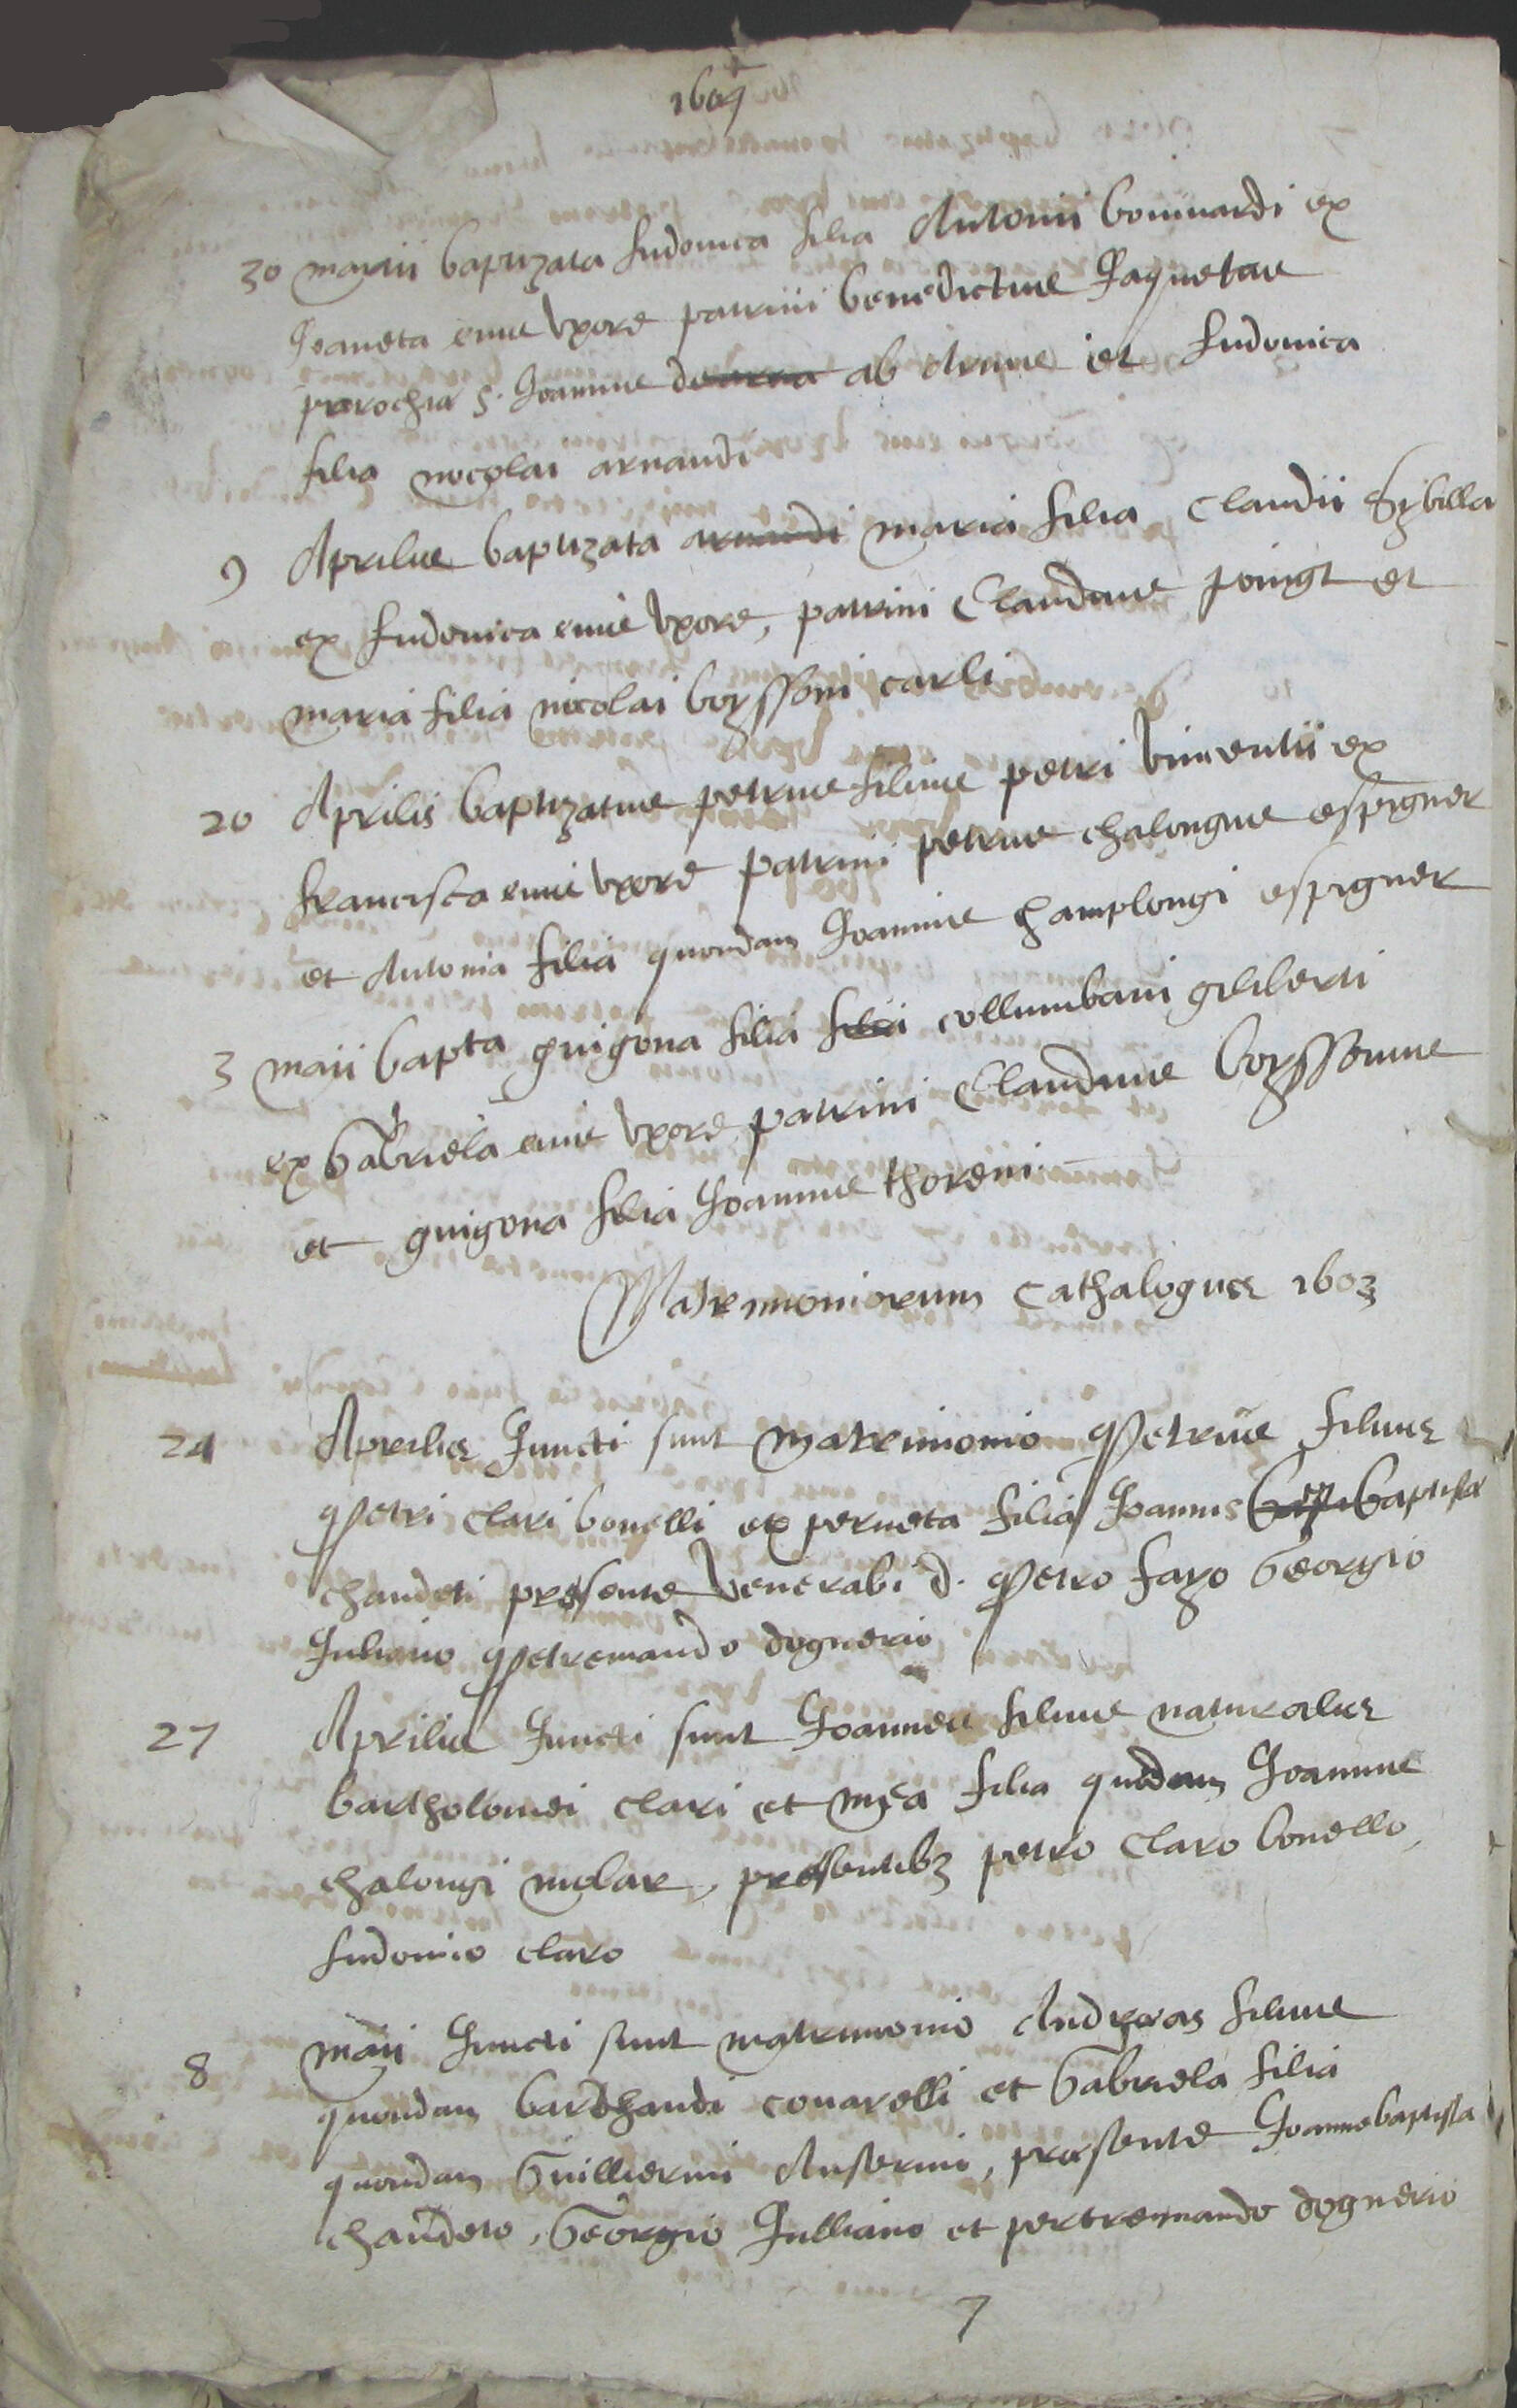 1604
30 martii baptizata Ludovica filia Antonii bonnardi ex
Joaneta eius uxore patrini benedictus Jaquetus
parochiæ S. Joannis de ab Arnue et Ludovica
filia nocolai arnaudi
9 Aprilis baptizata arnaudi maria filia Claudii Sybilla
ex Ludovica eius uxore, patrini Claudius poingt et
maria filia nicolai boyssoni carli
20 Aprilis baptizatus petrus filius petri vincentii ex
francisca eius uxore patrini petrus chalongus espigner
et Antonia filia quondam Joannis Champlongi espigner
3 maii bapta guigona filia filia collumbani gililerti
ex Gabriela eius uxore patrini Claudius boyssonnus
et guigona filia Joannis thoreni
Matrimoniorum Cathalogus 1603
24 Aprilis Juncti sunt matrimonio Petrus filius
Petri clari bonelli ex perneta filia Joannis baptistæ
chaudeti presente venerabi d. Petro fayo Georgio
Juliano Petremando dognerio
27 Aprilis Juncti sunt Joannes filius naturalis
bartholomei clari et mya filia quodam Joannis
chalongi molar, presentibz petro claro bonello,
Ludovico claro
8 maii Juncti sunt matrimonio Andreas filius
quondam barthandi conarelli et Gabriela filia
quondam Guillermi Anserini, presente Joannebaptista
chaudeto, Georgio Julliano et pertremando dognerio
7